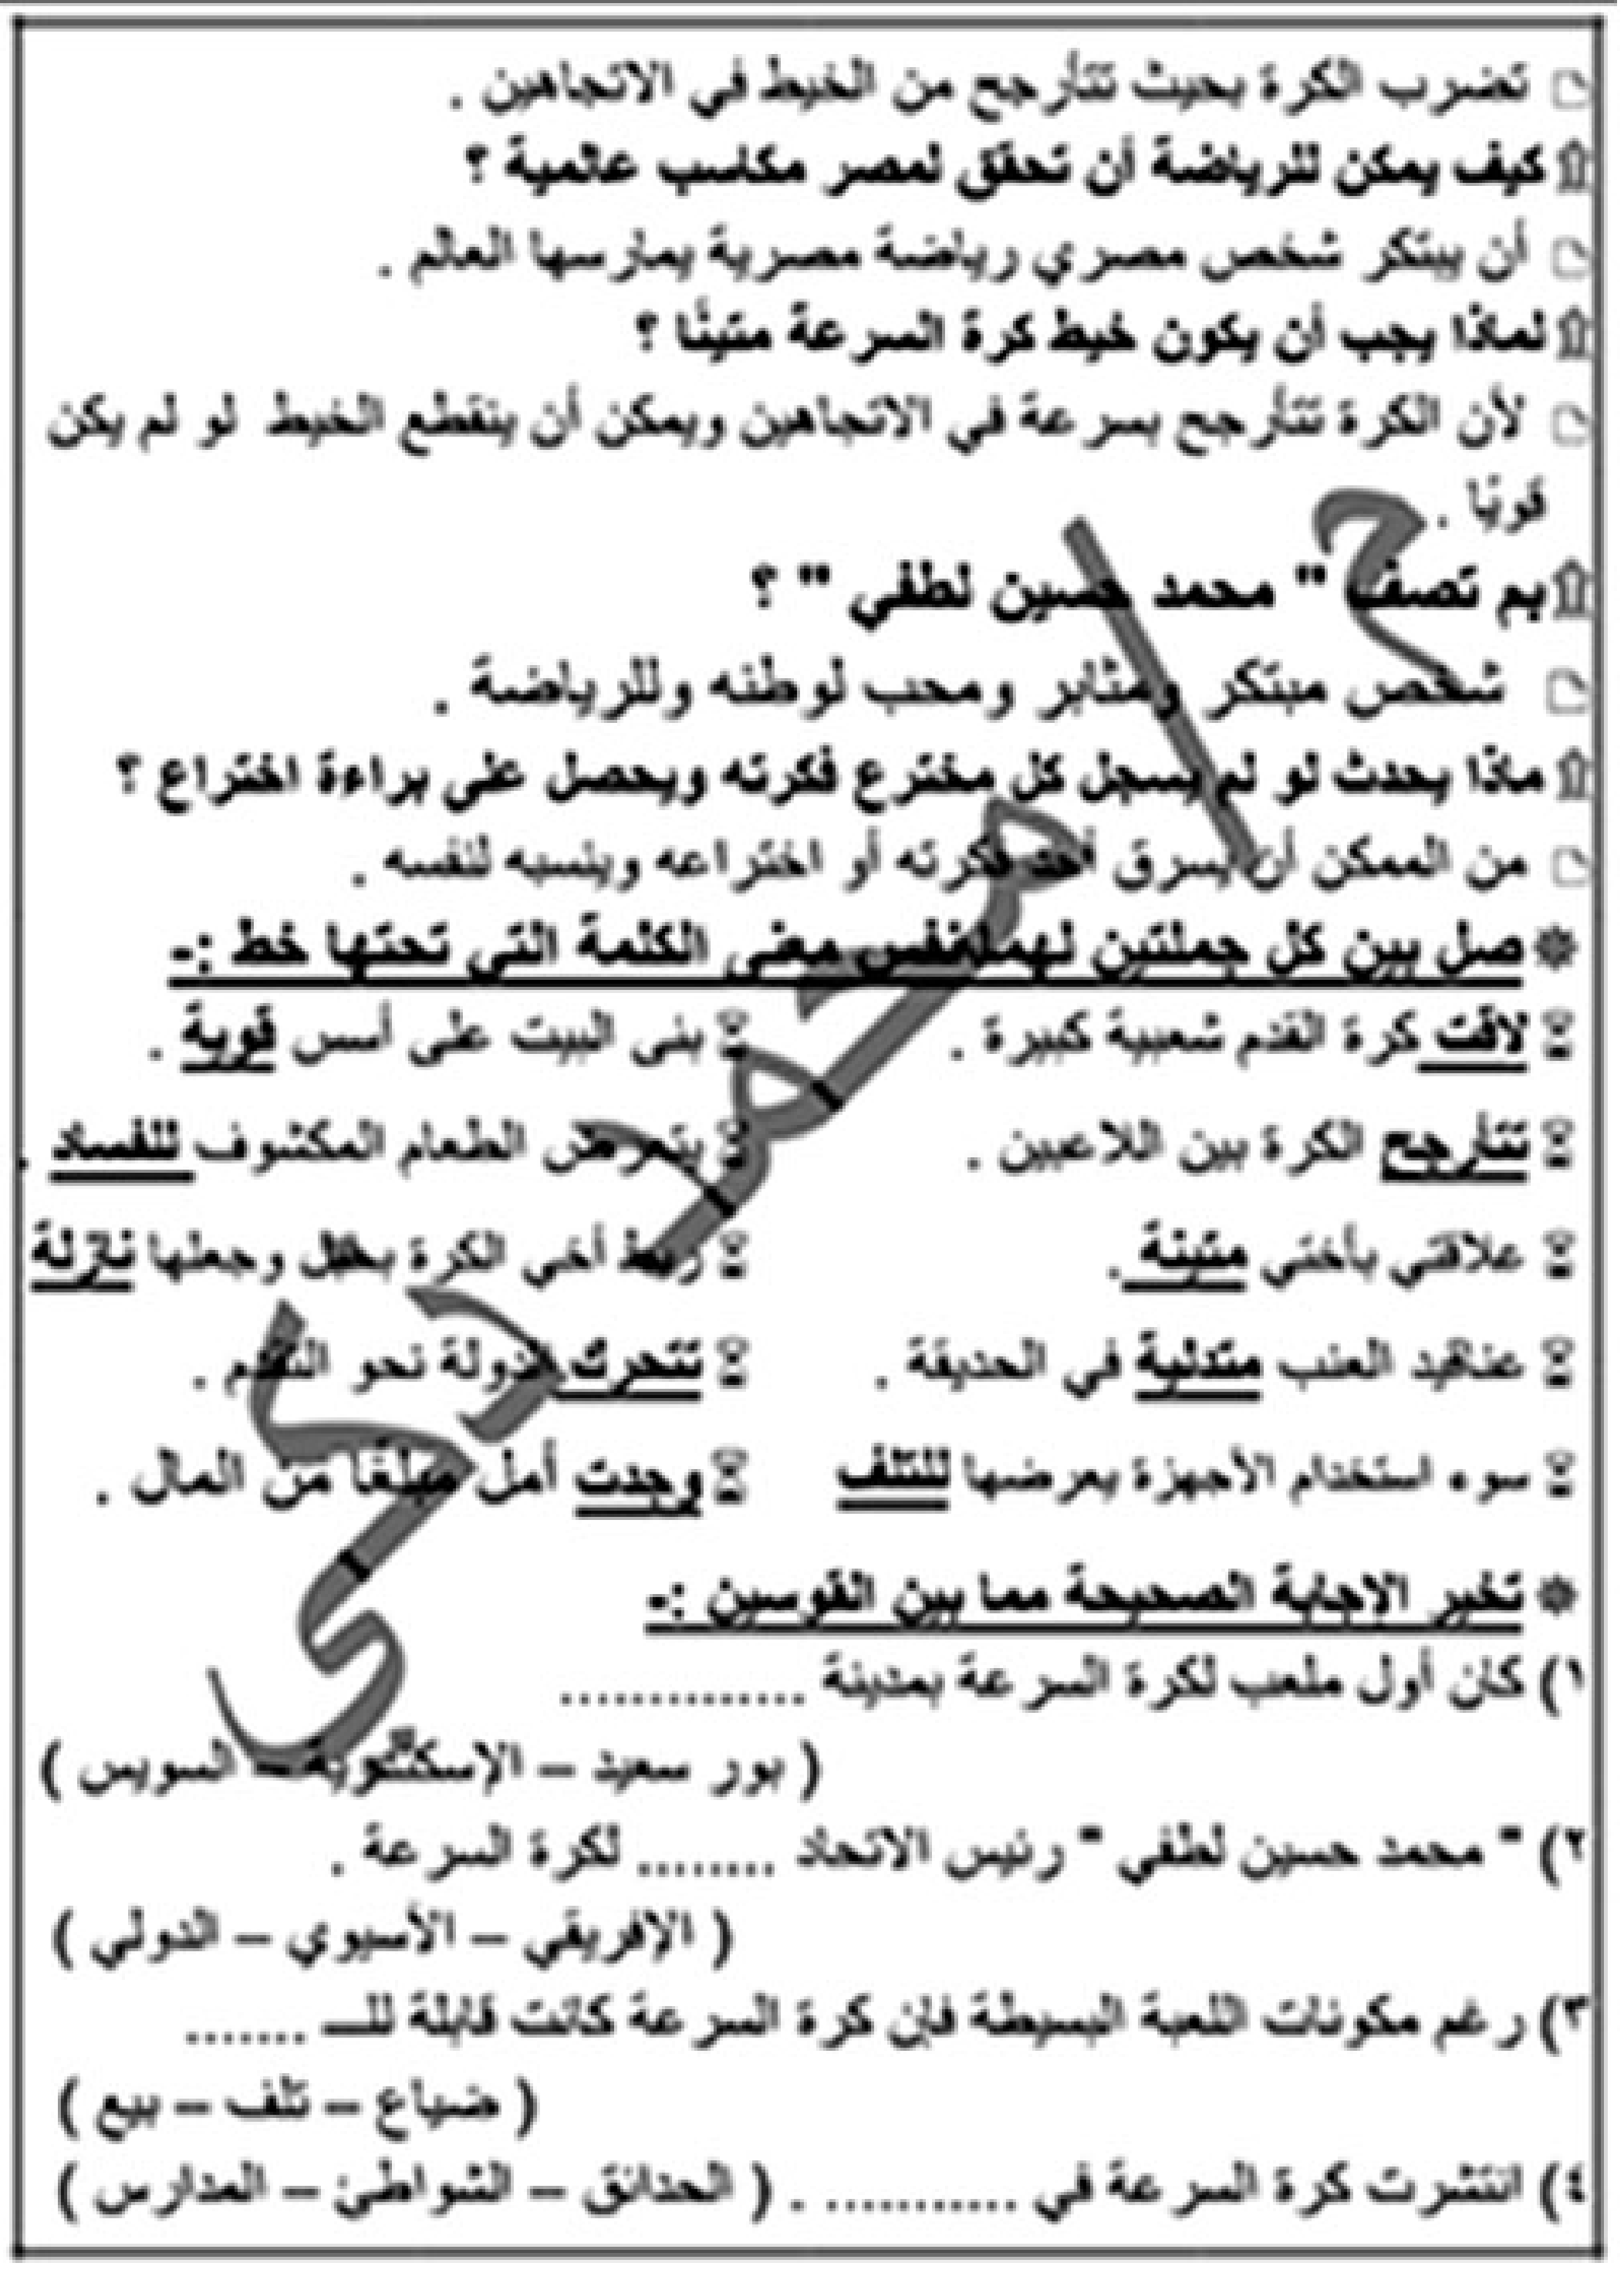 تضرب الكرة بحيث تتأرجح من الخيط في الاتجاهين .
كيف يمكن للرياضة أن تحقق لمصر مكاسب عالمية ؟
أن يبتكر شخص مصري رياضة مصرية يمارسها العالم .
لماذا يجب أن يكون خيط كرة السرعة متينًا ؟
لأن الكرة تتأرجح بسرعة في الاتجاهين ويمكن أن ينقطع الخيط لو لم يكن
قويًا .
بم تصف " محمد حسين لطفي " ؟
شخص مبتكر ومثابر ومحب لوطنه وللرياضة .
ماذا يحدث لو لم يسجل كل مخترع فكرته ويحصل على براءة اختراع ؟
من الممكن أن يسرق أحد فكرته أو اختراعه وينسبه لنفسه .
صل بين كل جملتين لهما نفس معنى الكلمة التي تحتها خط :-
لاقت كرة القدم شعبية كبيرة . بنى البيت على أسس قوية .
تتأرجح الكرة بين اللاعبين . يتعرض الطعام المكشوف للفساد .
علاقتي بأختي متينة . ربط أخي الكرة بحبل وجعلها نازلة
عناقيد العنب متدلية في الحديقة . تتحرك الدولة نحو التقدم .
سوء استخدام الأجهزة يعرضها للتلف وجدت أمل مبلغًا من المال .
تخير الإجابة الصحيحة مما بين القوسين :-
١) كان أول ملعب لكرة السرعة بمدينة ..............
( بور سعيد – الإسكندرية – السويس )
٢) " محمد حسين لطفي " رئيس الاتحاد ........ لكرة السرعة .
( الإفريقي – الأسيوي – الدولي )
٣) رغم مكونات اللعبة البسيطة فإن كرة السرعة كانت قابلة للـــ .......
( ضياع – تلف – بيع )
٤) انتشرت كرة السرعة في ........... . ( الحدائق – الشواطئ – المدارس )